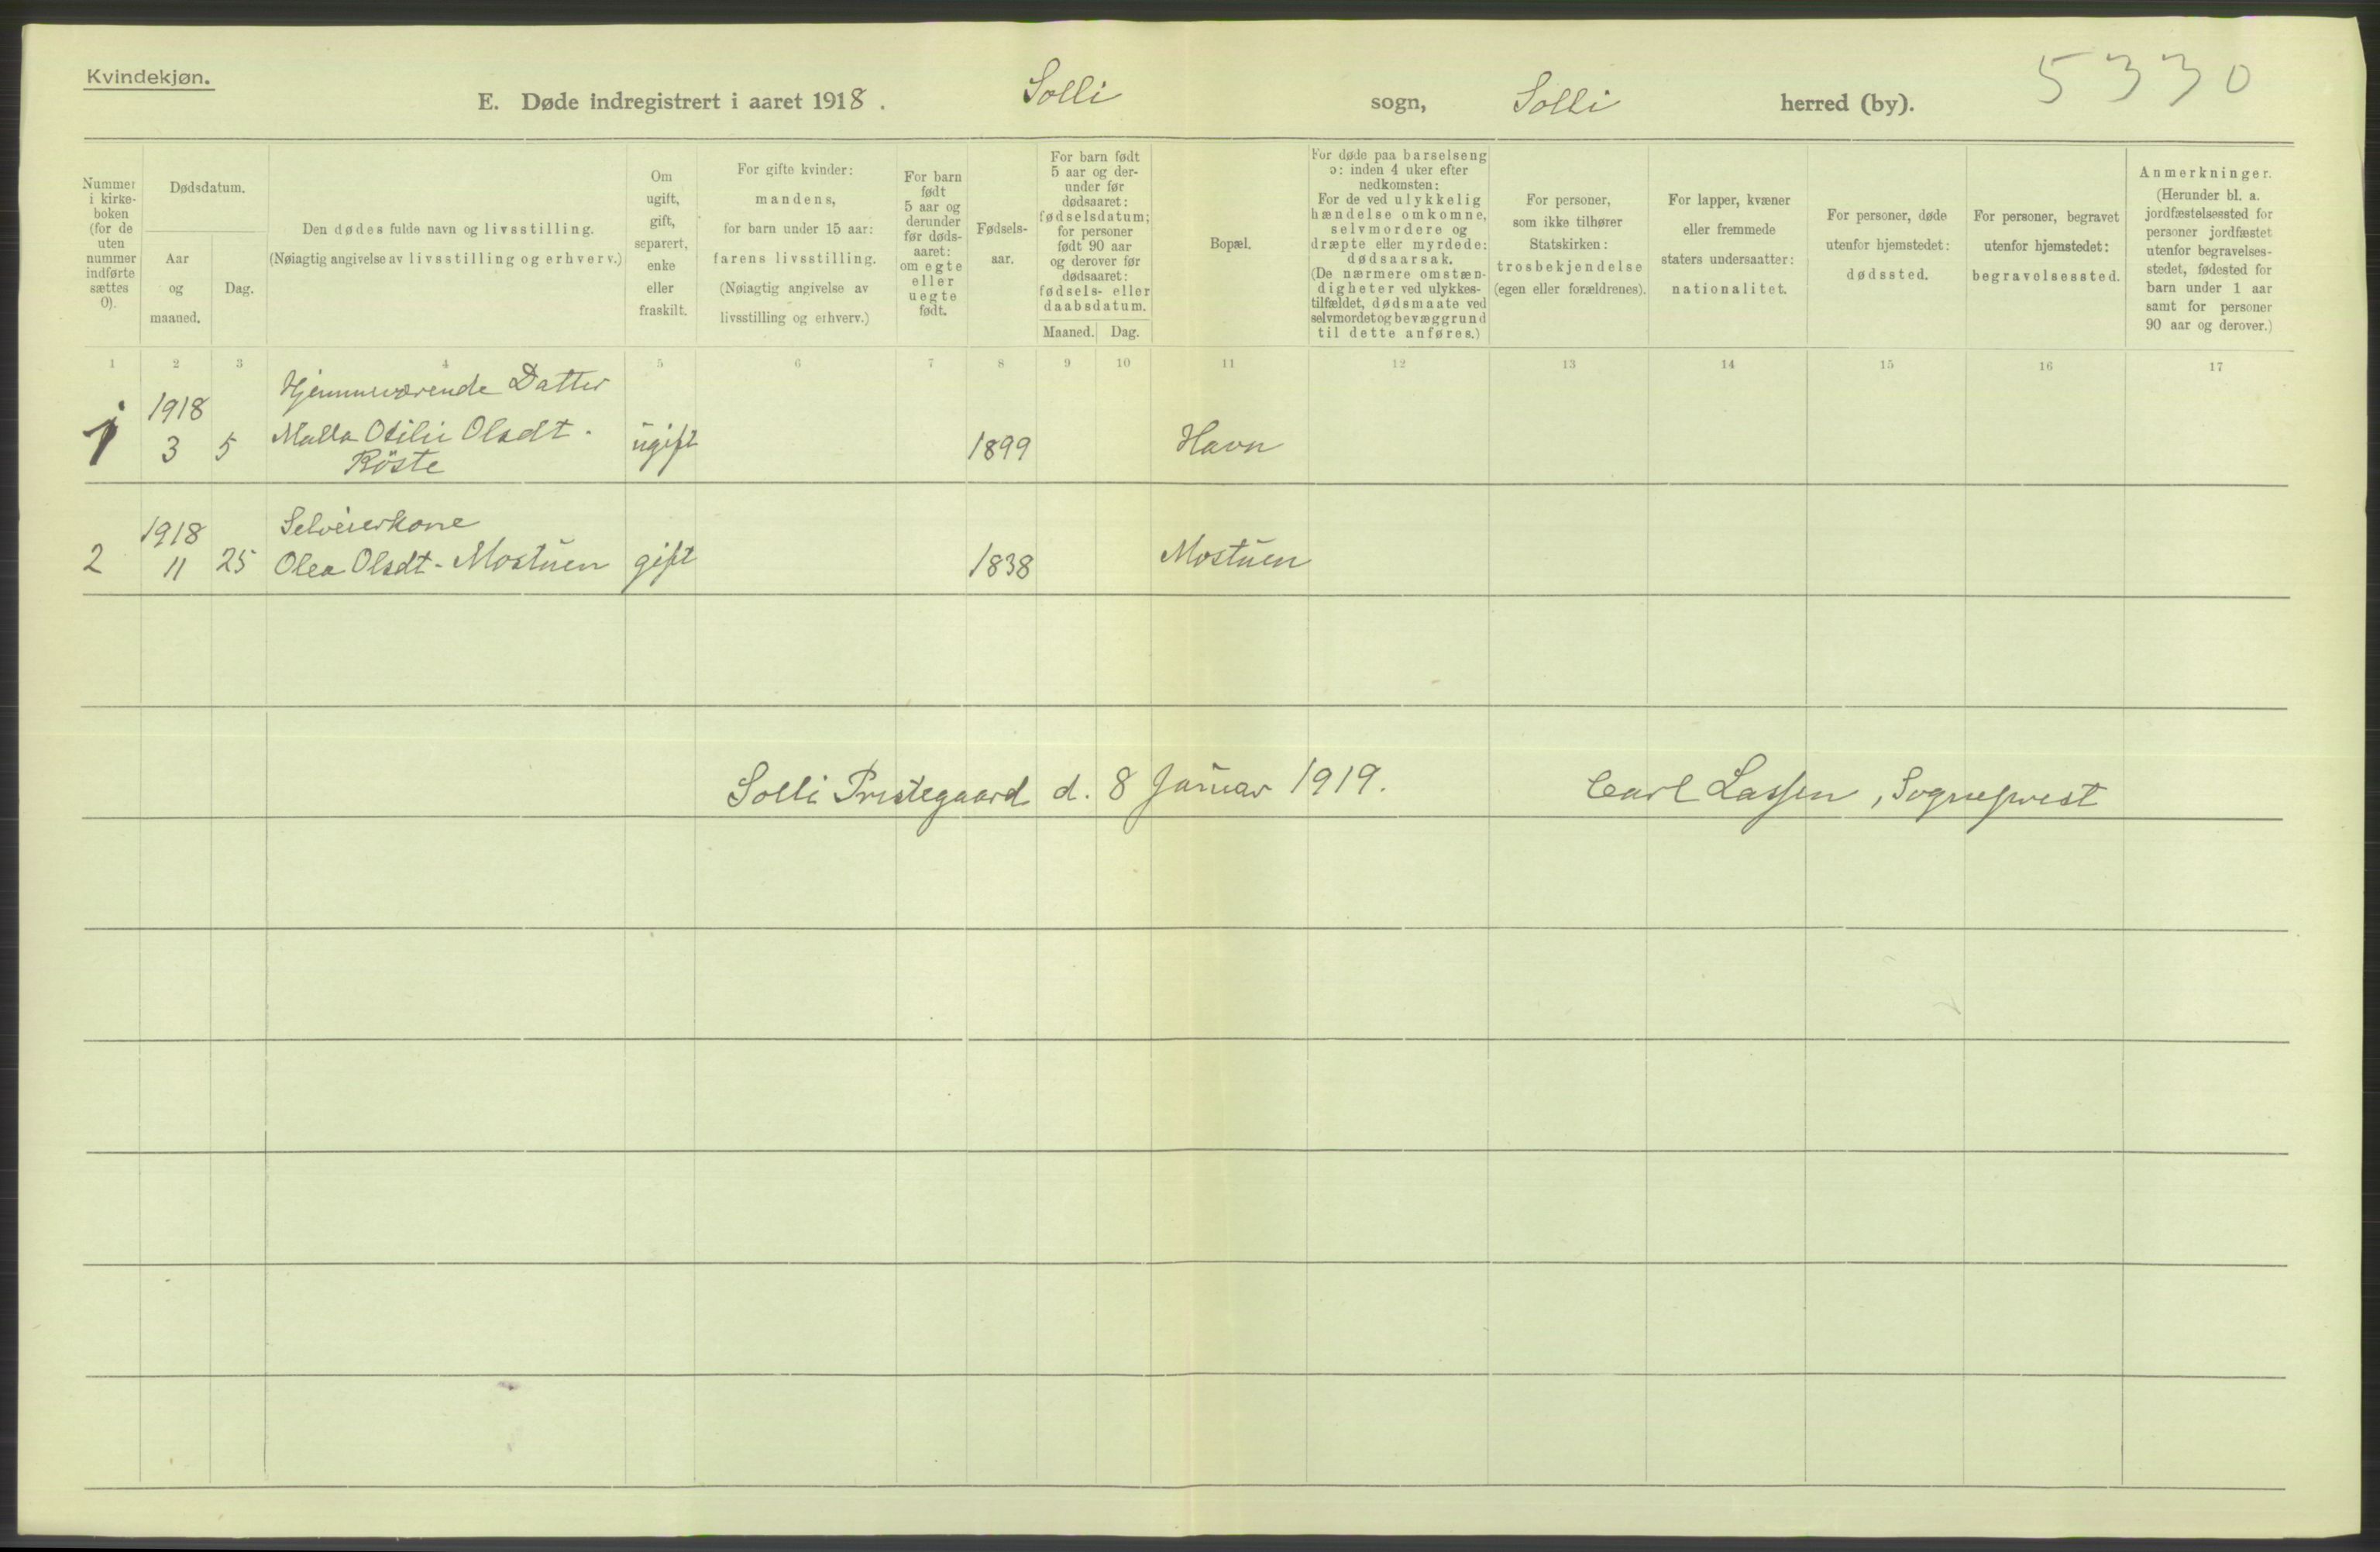 Kvindekjøn.
E. Døde indregistrert i aaret 1918. Solli sogn, Solli herred (by). 5330
Nummer
i kirke-
boken
(for de
uten
nummer
indførte
sættes
0).
Dødsdatum.
Aar
og
maaned.
Dag.
Den dødes fulde navn og livsstilling.
(Nøiagtig angivelse av livsstilling og erhverv.)
Om
ugift,
gift,
separert,
enke
eller
fraskilt.
For gifte kvinder:
mandens,
for barn under 15 aar:
farens livsstilling.
(Nøiagtig angivelse av
livsstilling og erhverv.)
For barn
født
5 aar og
derunder
før døds-
aaret:
om egte
eller
uegte
født.
Fødsels-
aar.
For barn født
5 aar og der-
under før
dødsaaret:
fødselsdatum;
for personer
født 90 aar
og derover før
dødsaaret:
fødsels- eller
daabsdatum.
Maaned. Dag.
Bopæl.
For døde paa barselseng
ɔ: inden 4 uker efter
nedkomsten:
For de ved ulykkelig
hændelse omkomne,
selvmordere og
dræpte eller myrdede:
dødsaarsak.
(De nærmere omstæn-
digheter ved ulykkes-
tilfældet, dødsmaate ved
selvmordet og bevæggrund
til dette anføres.)
For personer,
som ikke tilhører
Statskirken:
trosbekjendelse
(egen eller forældrenes).
For lapper, kvæner
eller fremmede
staters undersaatter:
nationalitet.
For personer, døde
utenfor hjemstedet:
dødssted.
For personer, begravet
utenfor hjemstedet:
begravelsessted.
Anmerkninger.
(Herunder bl. a.
jordfæstelsessted for
personer jordfæstet
utenfor begravelses-
stedet, fødested for
barn under 1 aar
samt for personer
90 aar og derover.)
1 2 3 4 5 6 7 8 9 10 11 12 13 14 15 16 17
1918 Hjemmeværende Datter
1 3 5 Malla Otilie Olsdt. ugift 1899 Havn
Röste
1918 Selveierkone
2 11 25 Olea Olsdt. Mostuen gift 1838 Mostuen
Solli Prestegaard d. 8 Januar 1919. Carl Lassen, Sogneprest